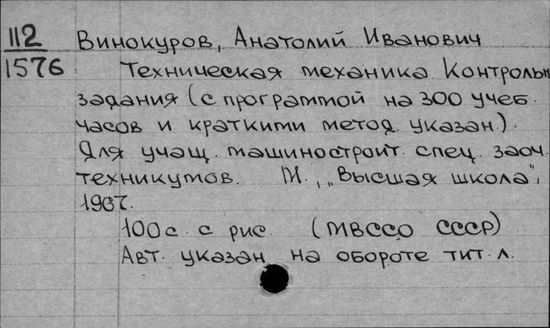 112
1576
Винокуров, Анатолий Иванович
Техническая механика. Контрольн
задания (с программой на 300 учеб.
часов и краткими метод. указан.).
Для учащ. машиностроит. спец. заоч.
техникумов. М., „Высшая школа",
1967.
100 с. с рис. (МВССО СССР)
Авт. указан на обороте тит. л.